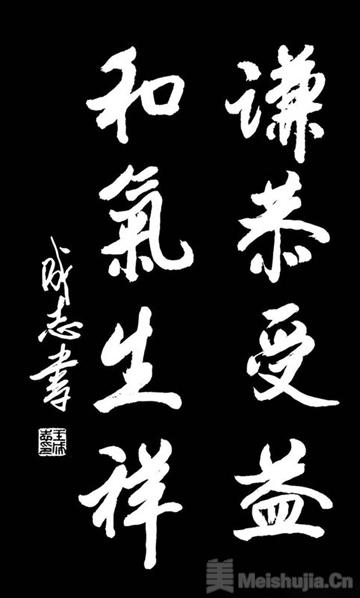 謙恭受益
和氣生祥
成志書
美 Meishujia.Cn